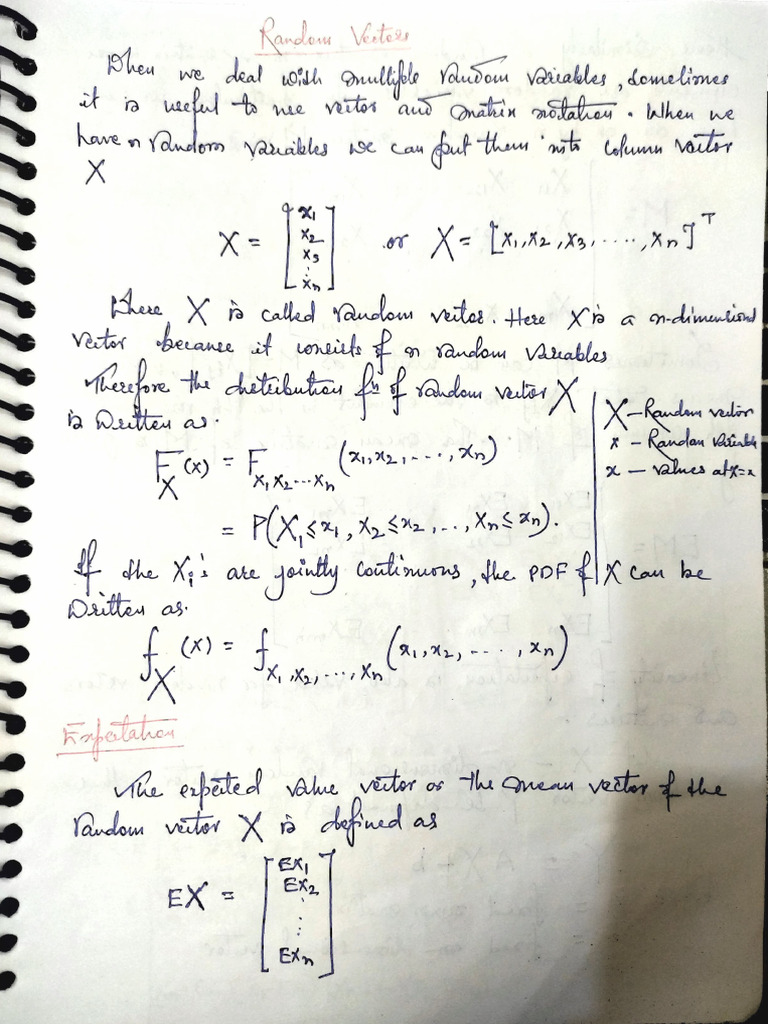 Random Vectors
When we deal with multiple random variables, sometimes
it is useful to use vector and matrix notation. When we
have n random variables we can put them into column vector
X
X = [x1 x2 x3 ⋮ xn] or X = [x1, x2, x3, ...., xn]^T
Where X is called random vector. Here X is a n-dimensional
vector because it consists of n random variables
Therefore the distribution fⁿ of random vector X
is written as.
X – Random vector
x – Random variable
x – values at X=x
F_X (x) = F_{X1 X2 ... Xn} (x1, x2, ..., xn)
= P(X1 ≤ x1, X2 ≤ x2, ..., Xn ≤ xn).
If the Xi's are jointly continuous, the PDF of X can be
written as.
f_X (x) = f_{X1, X2, ..., Xn} (x1, x2, ...., xn)
Expectation
The expected value vector or the mean vector of the
random vector X is defined as
EX = [EX1 EX2 ⋮ EXn]